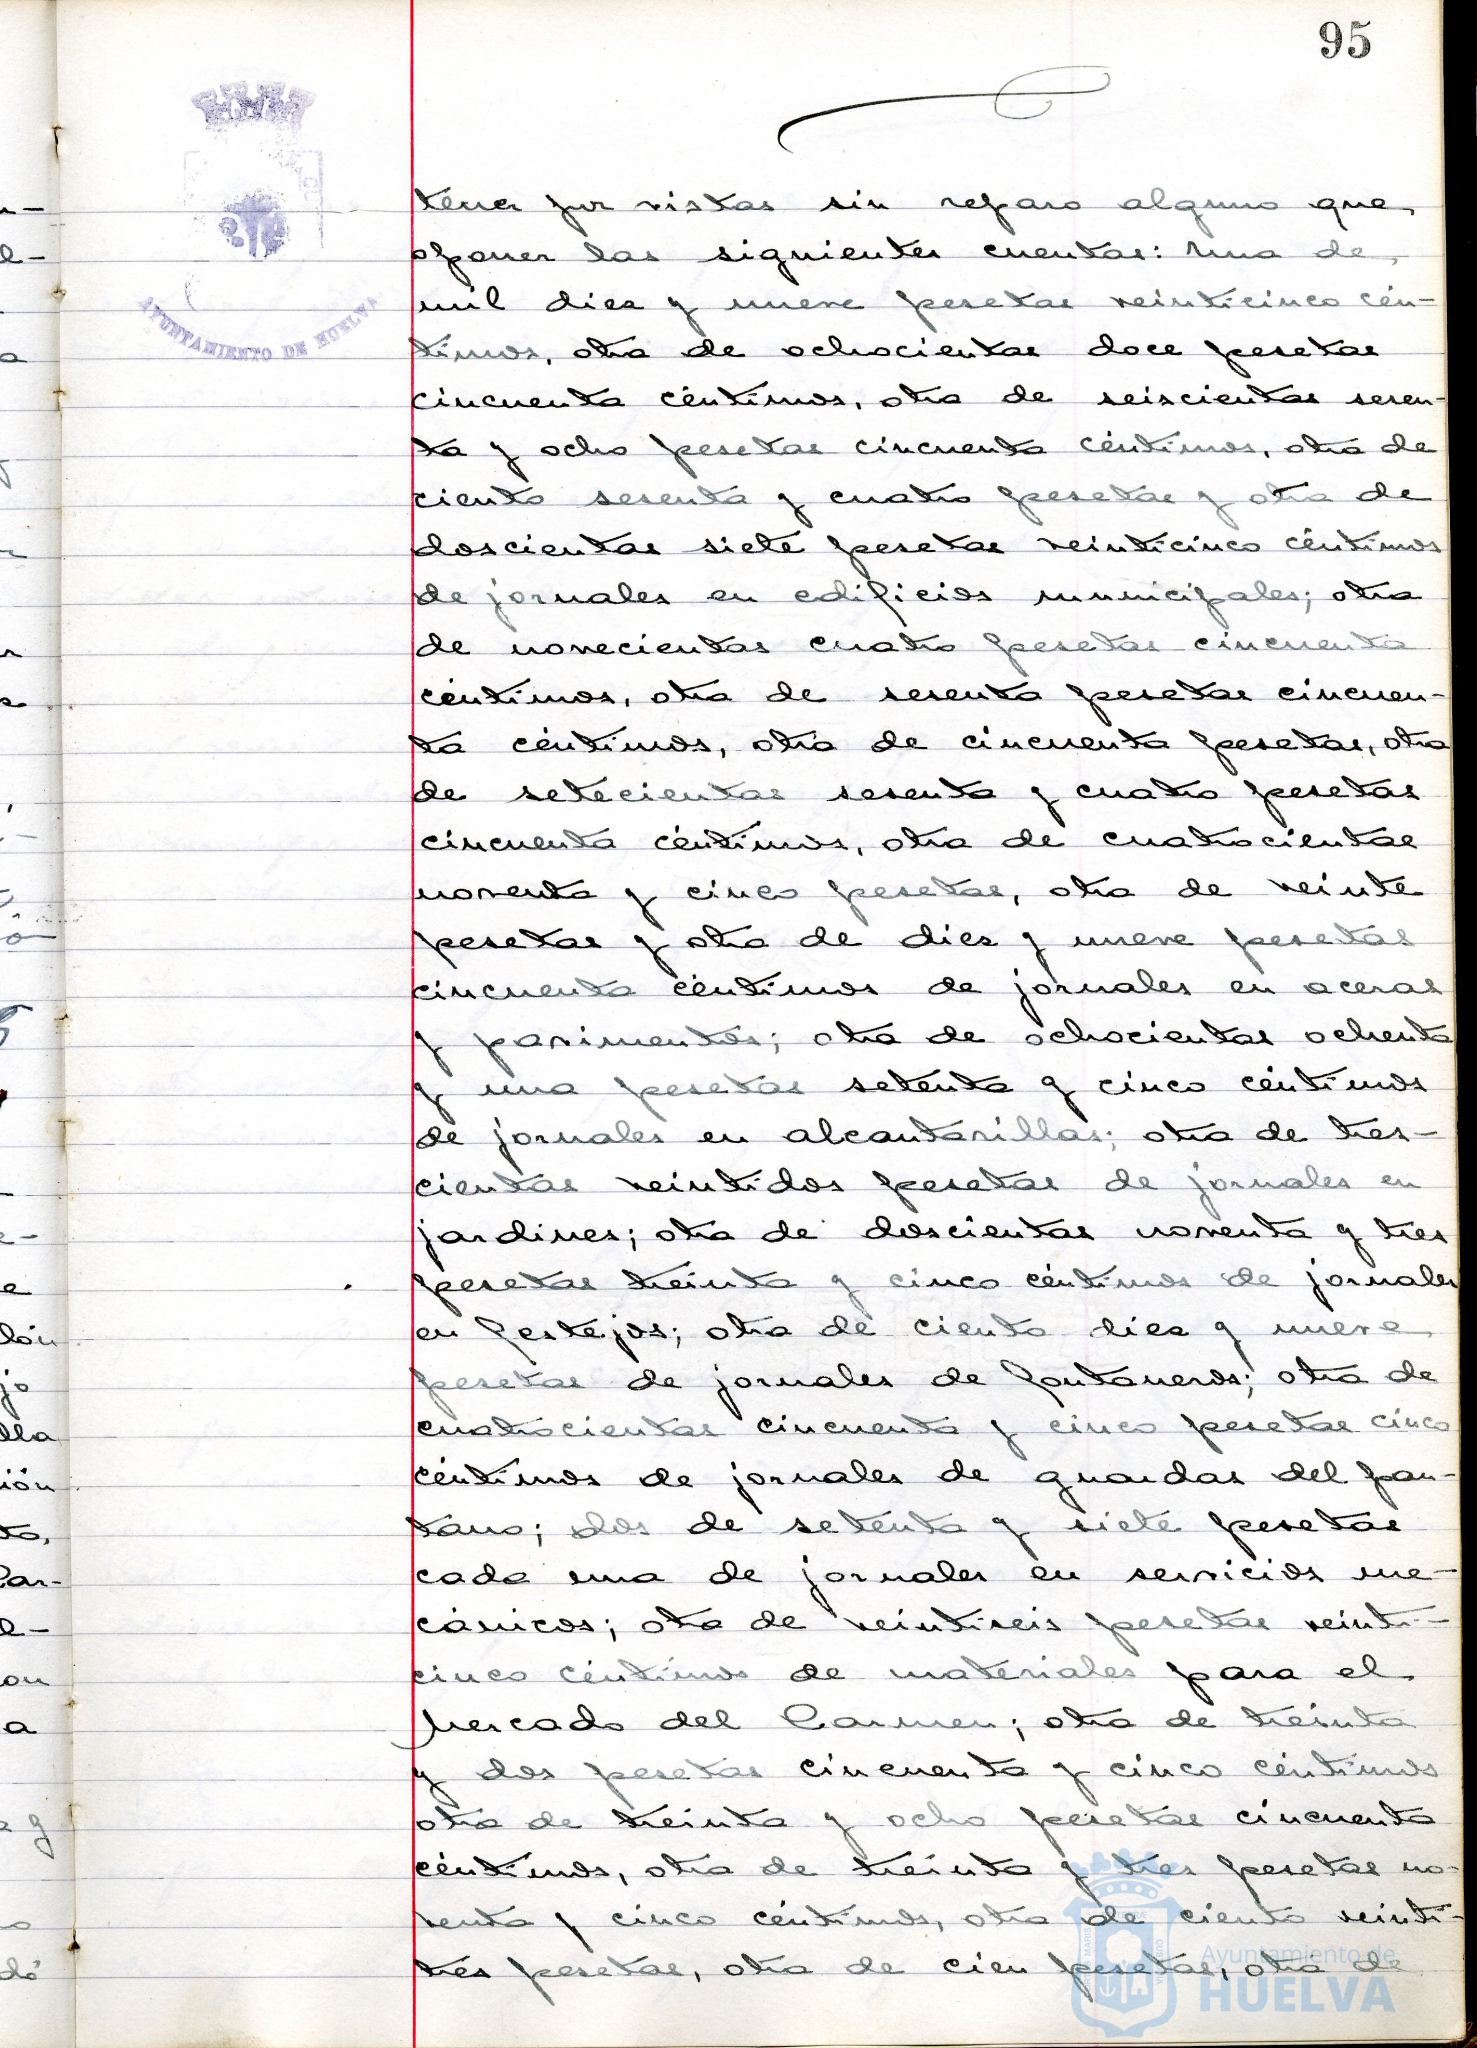 95
AYUNTAMIENTO DE HUELVA
tener por vistas sin reparo alguno que
oponer las siguientes cuentas: Una de
mil diez y nueve pesetas veinticinco cén-
timos, otra de ochocientas doce pesetas
cincuenta céntimos, otra de seiscientas sesen-
ta y ocho pesetas cincuenta céntimos, otra de
ciento sesenta y cuatro pesetas y otra de
doscientas siete pesetas veinticinco céntimos
de jornales en edificios municipales; otra
de novecientas cuatro pesetas cincuenta
céntimos, otra de sesenta pesetas cincuen-
ta céntimos, otra de cincuenta pesetas, otra
de setecientas sesenta y cuatro pesetas
cincuenta céntimos, otra de cuatrocientas
noventa y cinco pesetas, otra de veinte
pesetas y otra de diez y nueve pesetas
cincuenta céntimos de jornales en aceras
y pavimentos; otra de ochocientas ochenta
y una pesetas setenta y cinco céntimos
de jornales en alcantarillas; otra de tres-
cientas veintidos pesetas de jornales en
jardines; otra de doscientas noventa y tres
pesetas treinta y cinco céntimos de jornales
en festejos; otra de ciento diez y nueve
pesetas de jornales de fontaneros; otra de
cuatrocientas cincuenta y cinco pesetas cinco
céntimos de jornales de guardas del pan-
tano; dos de setenta y siete pesetas
cada una de jornales en servicios me-
cánicos; otra de veintiseis pesetas veinti-
cinco céntimos de materiales para el
Mercado del Carmen; otra de treinta
y dos pesetas cincuenta y cinco céntimos
otra de treinta y ocho pesetas cincuenta
céntimos, otra de treinta y tres pesetas no-
venta y cinco céntimos, otra de ciento veinti-
tres pesetas, otra de cien pesetas, otra de
Ayuntamiento de
HUELVA